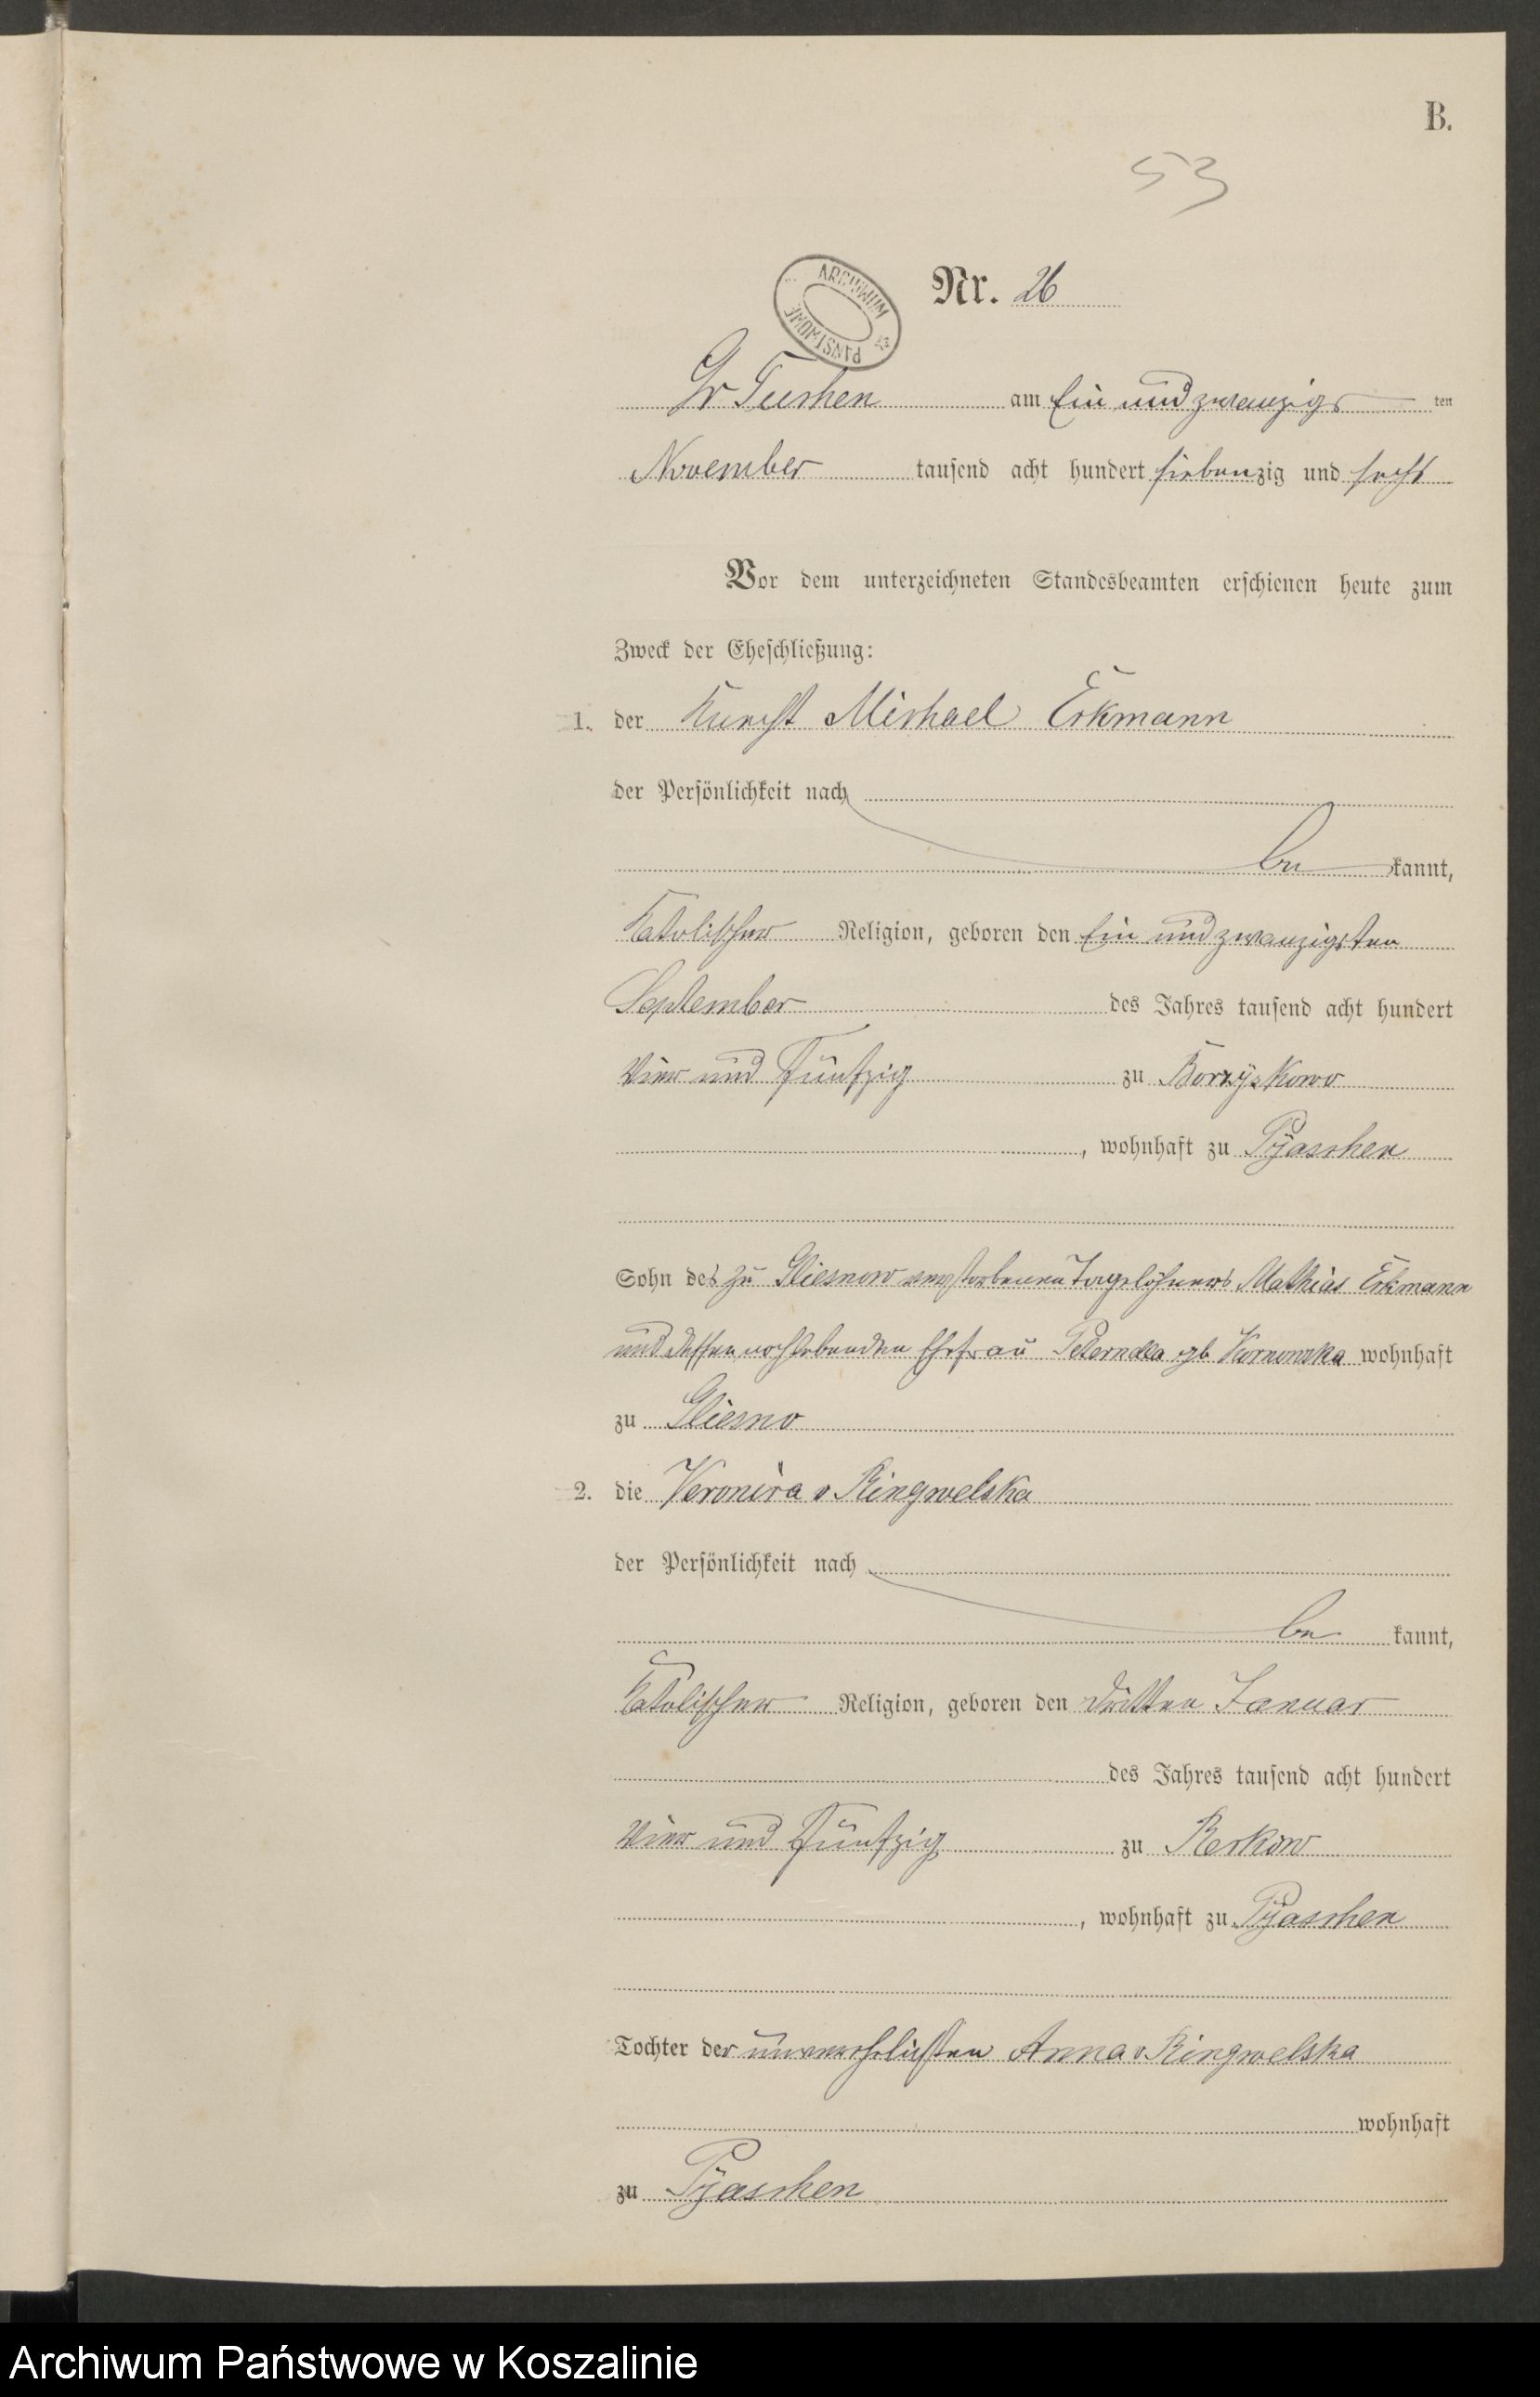 B.
53
ARCHIWUM PAŃSTWOWE
Nr. 26
Gr Tuchen am Ein und zwanzigs ten
November tausend acht hundert siebenzig und sechs
Vor dem unterzeichneten Standesbeamten erschienen heute zum
Zweck der Eheschließung:
1. der Knecht Michael Erkmann
der Persönlichkeit nach
be kannt,
Katolischer Religion, geboren den Ein und zwanzigsten
September des Jahres tausend acht hundert
Vier und Fünfzig zu Borzyskowo
, wohnhaft zu Pyaschen
Sohn des zu Gliesnow verstorbenen Tagelöhners Mathias Erkmann
und dessen noch lebenden Ehefrau gb wohnhaft
zu Gliesno
2. die Veronica v Ringwelska
der Persönlichkeit nach
be kannt,
Katolischer Religion, geboren den dritten Januar
des Jahres tausend acht hundert
Vier und Fünfzig zu Reckow
, wohnhaft zu Pyaschen
Tochter der unverehelichten Anna v Ringwelska
wohnhaft
zu Pyaschen
Archiwum Państwowe w Koszalinie